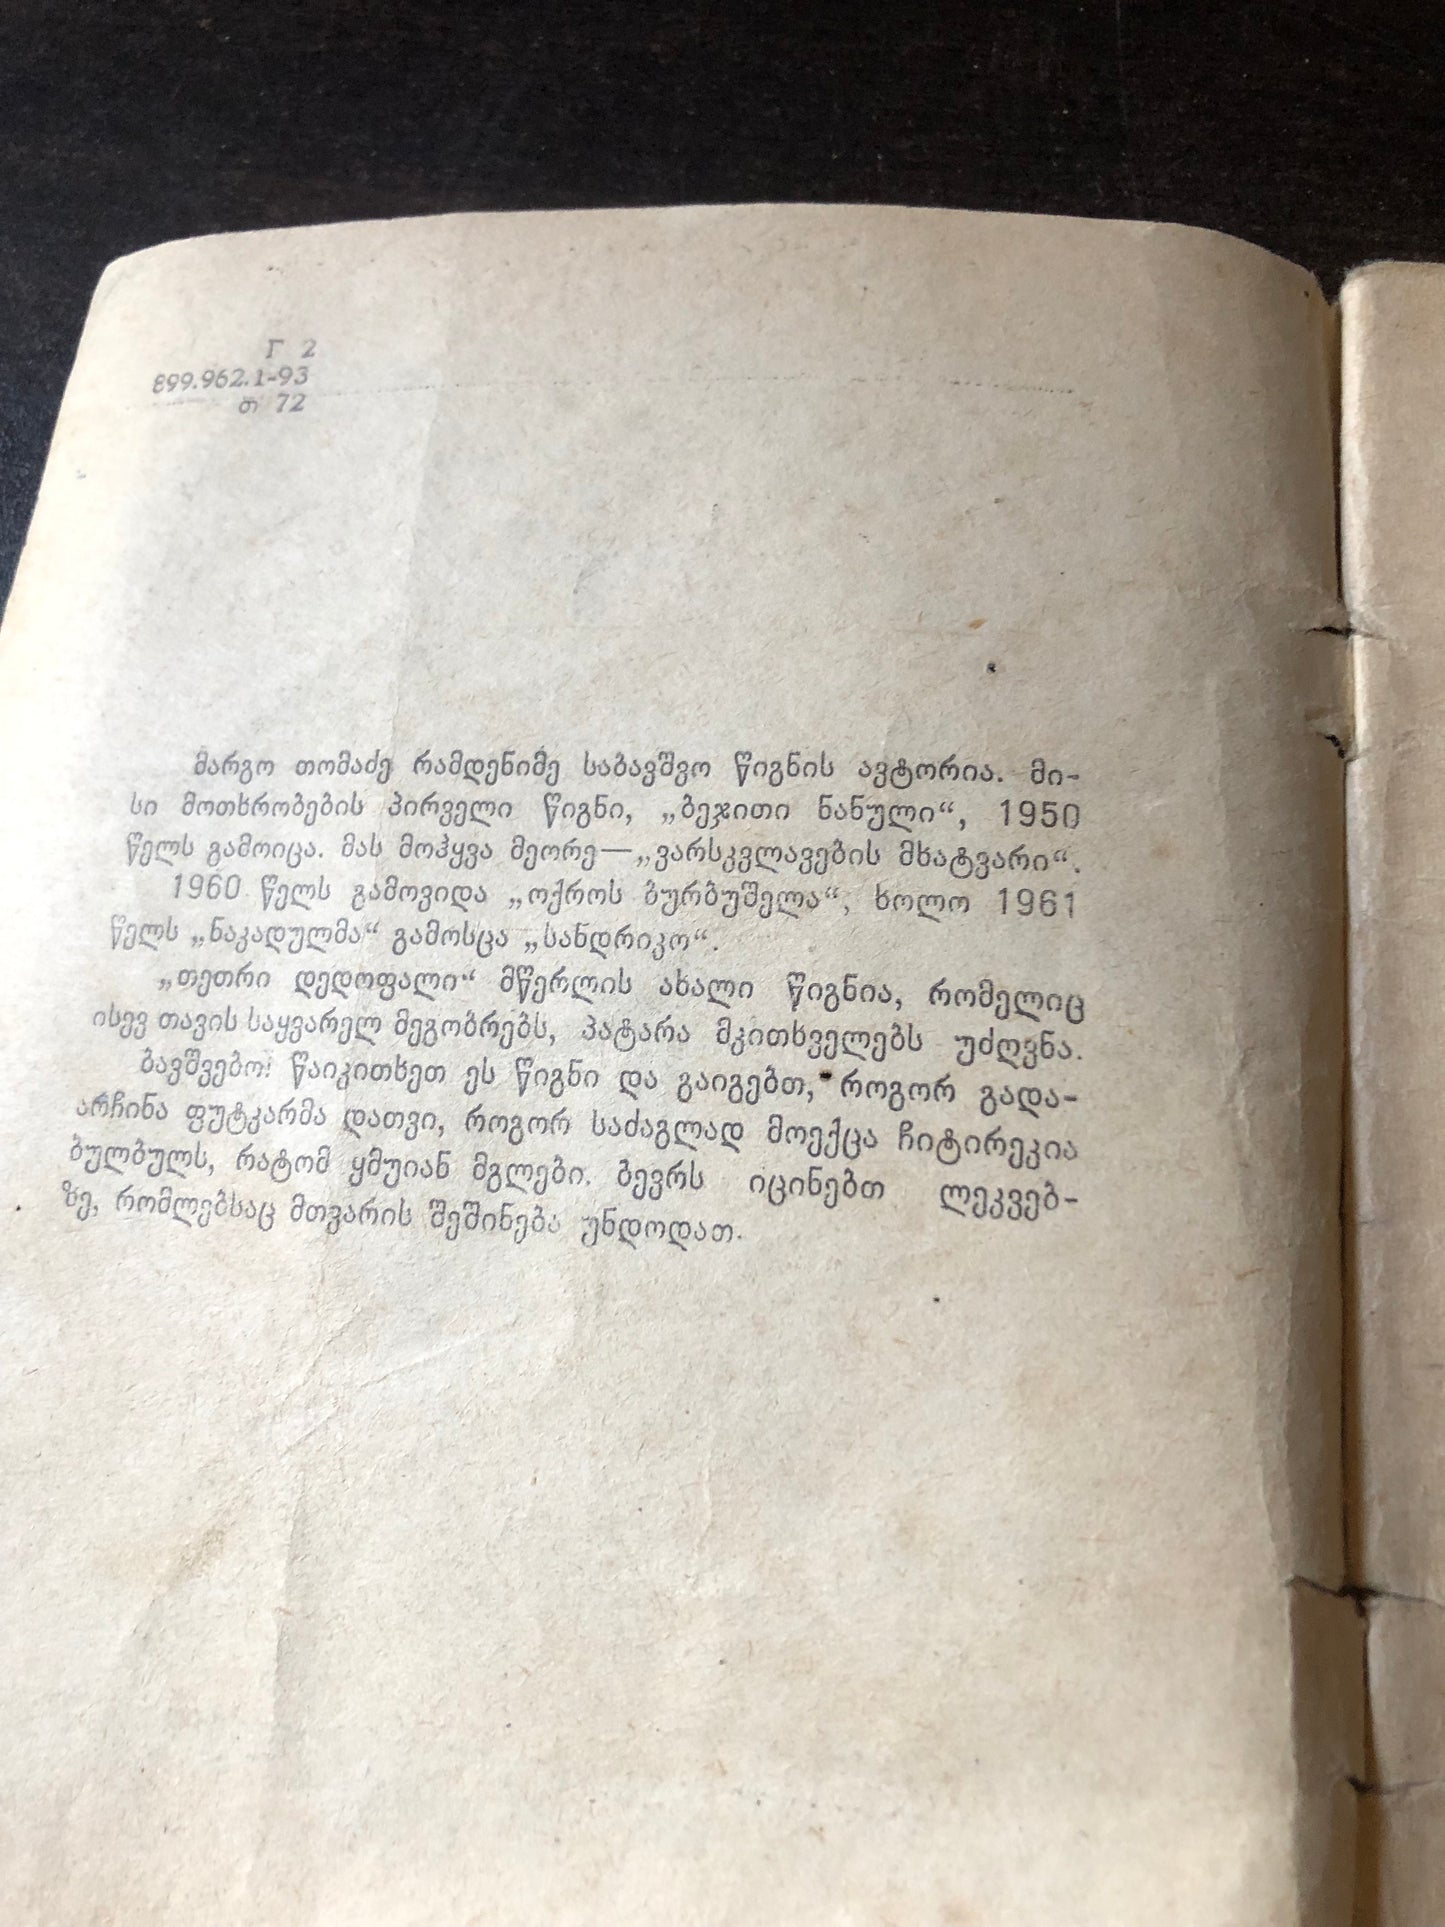 Г 2
899.962.1-93
თ 72
მარგო თომაძე რამდენიმე საბავშვო წიგნის ავტორია. მი-
სი მოთხრობების პირველი წიგნი, „ბეჯითი ნანული“, 1950
წელს გამოიცა. მას მოჰყვა მეორე—„ვარსკვლავების მხატვარი“.
1960 წელს გამოვიდა „ოქროს ბურბუშელა“, ხოლო 1961
წელს „ნაკადულმა“ გამოსცა „სანდრიკო“.
„თეთრი დედოფალი“ მწერლის ახალი წიგნია, რომელიც
ისევ თავის საყვარელ მეგობრებს, პატარა მკითხველებს უძღვნა.
ბავშვებო! წაიკითხეთ ეს წიგნი და გაიგებთ, როგორ გადა-
არჩინა ფუტკარმა დათვი, როგორ საძაგლად მოექცა ჩიტირეკია
ბულბულს, რატომ ყმუიან მგლები. ბევრს იცინებთ ლეკვებ-
ზე, რომლებსაც მთვარის შეშინება უნდოდათ.